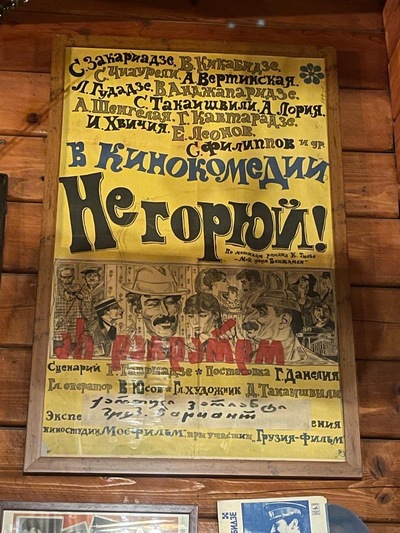 С. Закариадзе, В. Кикабидзе,
С. Чиаурели, А. Вертинская,
Л. Гудадзе, В. Анджапаридзе,
С. Такаишвили, А. Лория,
А. Шенгелая, Г. Кавтарадзе,
И. Хвичия, Е. Леонов,
С. Филиппов и др
в кинокомедии
Не горюй!
По мотивам романа К. Тилье
"Мой дядя Бенжамен"
Сценарий Р. Габриадзе * Постановка Г. Данелия
Гл. оператор В. Юсов * Гл. художник Д. Такаишвили
Экспе
груз. вариант
ения
киностудии Мосфильм при участии Грузия-фильм